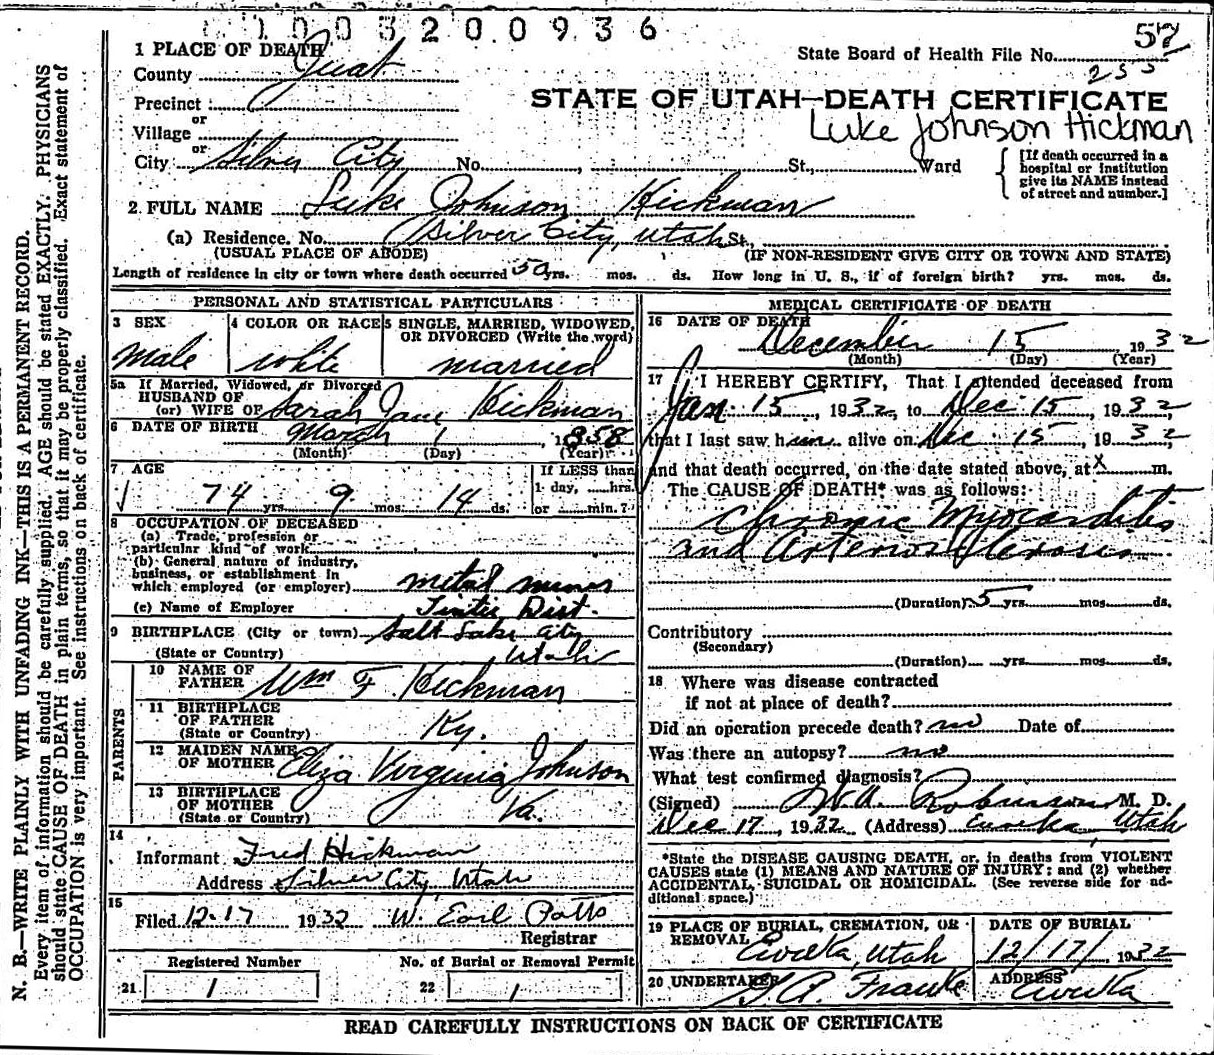 0100320 0936
57
State Board of Health File No.
255
1 PLACE OF DEATH
County Juab
STATE OF UTAH—DEATH CERTIFICATE
Luke Johnson Hickman
Precinct
or
Village
or
City Silver City No. , St., Ward
[If death occurred in a hospital or institution give its NAME instead of street and number.]
2. FULL NAME Luke Johnson Hickman
(a) Residence. No. Silver City, Utah St.,
(USUAL PLACE OF ABODE) (IF NON-RESIDENT GIVE CITY OR TOWN AND STATE)
Length of residence in city or town where death occurred 50 yrs. mos. ds. How long in U. S., if of foreign birth? yrs. mos. ds.
PERSONAL AND STATISTICAL PARTICULARS
3 SEX
Male
4 COLOR OR RACE
white
5 SINGLE, MARRIED, WIDOWED, OR DIVORCED (Write the word)
married
5a If Married, Widowed, or Divorced
HUSBAND OF
(or) WIFE OF Sarah Jane Hickman
6 DATE OF BIRTH March 1, 1858
(Month) (Day) (Year)
7 AGE
74 yrs. 9 mos. 14 ds.
If LESS than
1 day, hrs.
or min.?
8 OCCUPATION OF DECEASED
(a) Trade, profession or
particular kind of work
(b) General nature of industry,
business, or establishment in
which employed (or employer) metal miner
(c) Name of Employer Tintic Dist.
9 BIRTHPLACE (City or town) Salt Lake City
(State or Country) Utah
PARENTS
10 NAME OF
FATHER Wm F. Hickman
11 BIRTHPLACE
OF FATHER
(State or Country) Ky.
12 MAIDEN NAME
OF MOTHER Eliza Virginia Johnson
13 BIRTHPLACE
OF MOTHER
(State or Country) Va.
14
Informant Fred Hickman
Address Silver City, Utah
15
Filed 12-17 1932 W. Earl Potts
Registrar
Registered Number
21 1
No. of Burial or Removal Permit
22 1
MEDICAL CERTIFICATE OF DEATH
16 DATE OF DEATH
December 15, 1932
(Month) (Day) (Year)
17 I HEREBY CERTIFY, That I attended deceased from
Jan. 15, 1932, to Dec 15, 1932,
that I last saw him alive on Dec 15, 1932
and that death occurred, on the date stated above, at X m.
The CAUSE OF DEATH* was as follows:
Chronic Myocarditis
and Arteriosclerosis
(Duration) 5 yrs. mos. ds.
Contributory
(Secondary)
(Duration) yrs. mos. ds.
18 Where was disease contracted
if not at place of death?
Did an operation precede death? no Date of
Was there an autopsy? no
What test confirmed diagnosis?
(Signed) Robinson M. D.
Dec 17, 1932 (Address) Eureka, Utah
*State the DISEASE CAUSING DEATH, or, in deaths from VIOLENT
CAUSES state (1) MEANS AND NATURE OF INJURY; and (2) whether
ACCIDENTAL, SUICIDAL OR HOMICIDAL. (See reverse side for ad-
ditional space.)
19 PLACE OF BURIAL, CREMATION, OR
REMOVAL Eureka, Utah
DATE OF BURIAL
12/17/, 1932
20 UNDERTAKER Franke
ADDRESS
Eureka
READ CAREFULLY INSTRUCTIONS ON BACK OF CERTIFICATE
N. B.—WRITE PLAINLY WITH UNFADING INK—THIS IS A PERMANENT RECORD.
Every item of information should be carefully supplied. AGE should be stated EXACTLY. PHYSICIANS
should state CAUSE OF DEATH in plain terms, so that it may be properly classified. Exact statement of
OCCUPATION is very important. See instructions on back of certificate.